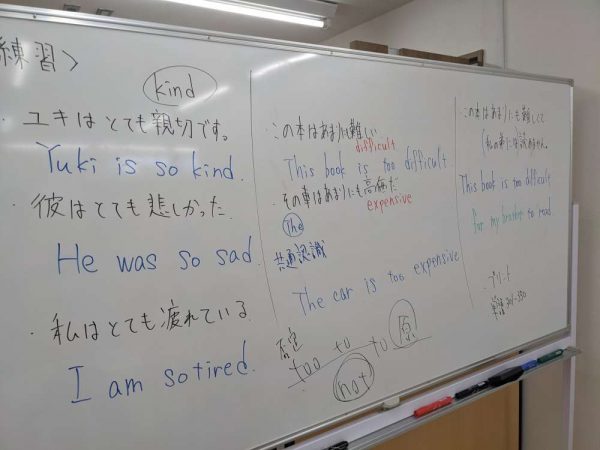 練習〉
kind
・ユキはとても親切です。
Yuki is so kind.
・彼はとても悲しかった
He was so sad
・私はとても疲れている
I am so tired.
・この本はあまりにも難しい
difficult
This book is too difficult
・その車はあまりにも高価だ
expensive
The
共通認識
The car is too expensive
否定
too to
to 原
not
この本はあまりにも難しくて
(私の弟に)は読めません。
This book is too difficult
for my brother to read
・プリント